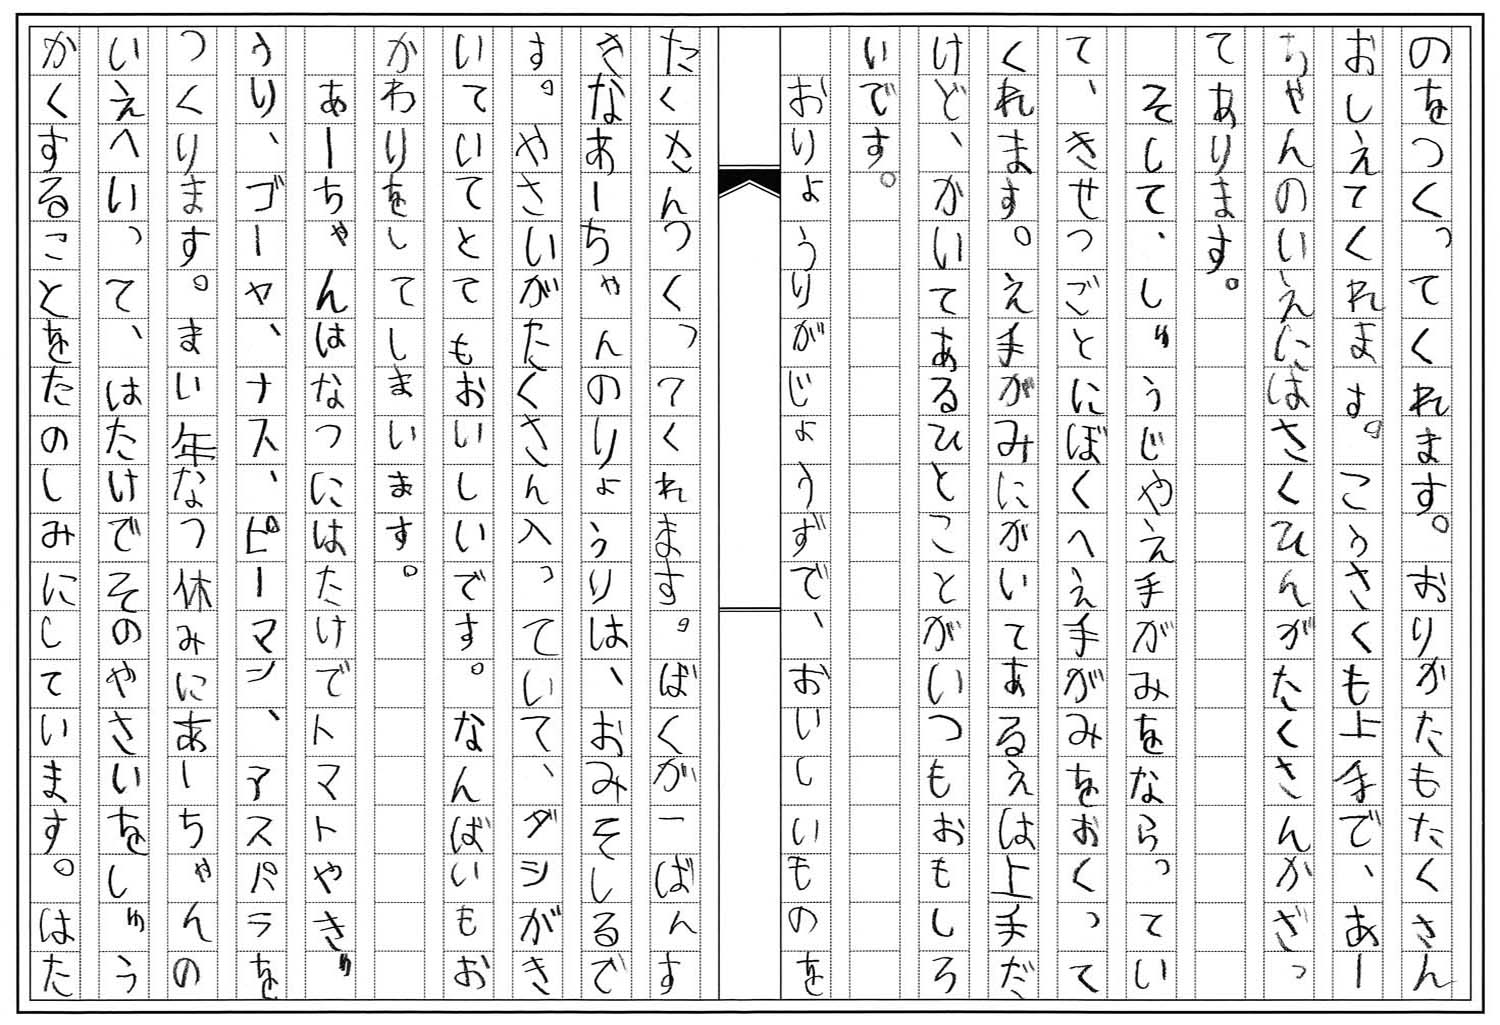 のをつくってくれます。おりかたもたくさん
おしえてくれます。こうさくも上手で、あー
ちゃんのいえにはさくひんがたくさんかざっ
てあります。
そして、しゅうじやえ手がみをならってい
て、きせつごとにぼくへえ手がみをおくって
くれます。え手がみにがいてあるえは上手だ
けど、かいてあるひとことがいつもおもしろ
いです。
おりょうりがじょうずで、おいしいものを
たくさんつくってくれます。ばくが一ばんす
きなあーちゃんのりょうりは、おみそしるで
す。やさいがたくさん入っていて、ダシがき
いていてとてもおいしいです。なんばいもお
かわりをしてしまいます。
あーちゃんはなつにはたけでトマトやきゅ
うり、ゴーヤ、ナス、ピーマン、アスパラを
つくります。まい年なつ休みにあーちゃんの
いえへいって、はたけでそのやさいをしゅう
かくすることをたのしみにしています。はた